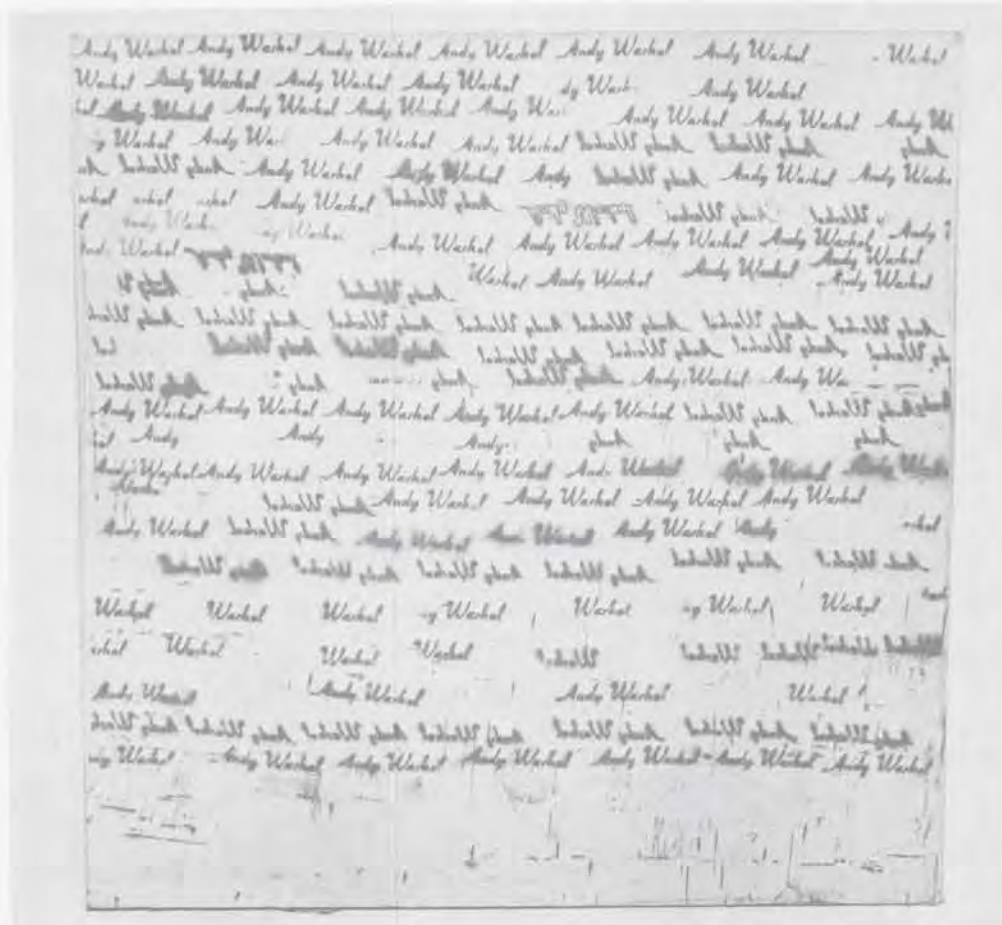 Andy Warhol Andy Warhol Andy Warhol Andy Warhol Andy Warhol Andy Warhol Warhol
Warhol Andy Warhol Andy Warhol Andy Warhol dy Warh Andy Warhol
hol Andy Warhol Andy Warhol Andy Warhol Andy Wa Andy Warhol Andy Warhol Andy
y Warhol Andy War Andy Warhol Andy Warhol Andy Warhol Andy Warhol Andy
Andy Warhol Andy Warhol Andy Warhol Andy Andy Warhol Andy Warhol Andy Warho
arhol arhol rhol Andy Warhol Andy Warhol Andy Warhol Warhol
Andy Warh dy Warhol Andy Warhol Andy Warhol Andy Warhol Andy Warhol Andy
Andy Warhol Warhol Andy Warhol Andy Warhol Andy Warhol Andy Warhol
Andy Andy Andy Warhol
Andy Warhol Andy Warhol Andy Warhol Andy Warhol Andy Warhol Andy Warhol Andy Warhol
hol Andy Warhol Andy Warhol Andy Warhol Andy Warhol Andy Warhol Andy Warhol
Andy Warhol Andy Andy Andy Warhol Andy Warhol Andy Wa
Andy Warhol Andy Warhol Andy Warhol Andy Warhol Andy Warhol Andy Warhol Andy Warhol Andy
hol Andy Andy Andy Andy Andy Andy
Andy Warhol Andy Warhol Andy Warhol Andy Warhol Andy Warhol Andy Warhol Andy Warho
Andy Warhol Andy Warhol Andy Warhol Andy Warhol Andy Warhol
Andy Warhol Andy Warhol Andy Warhol Warhol Andy Warhol Andy rhol
Andy Warhol Andy Warhol Andy Warhol Andy Warhol Andy Warhol Andy Warhol
Warhol Warhol Warhol y Warhol Warhol y Warhol Warhol
arhol Warhol Warhol Warhol Warhol Warhol Warhol Warhol Warhol
Andy Warhol Andy Warhol Andy Warhol Warhol
Andy Warhol Andy Warhol Andy Warhol Andy Warhol Andy Warhol Andy Warhol Andy Warhol
dy Warhol Andy Warhol Andy Warhol Andy Warhol Andy Warhol Andy Warhol Andy Warhol